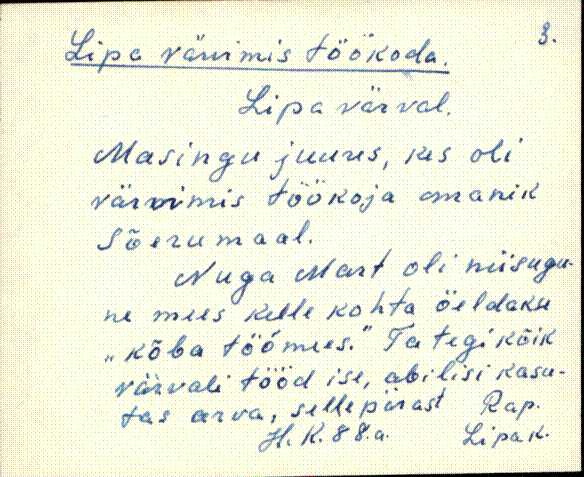 3.
Lipa värvimis töökoda.
Lipa värval.
Masingu juures, kes oli
värvimis töökoja omanik
Sõerumaal.
Nuga Mart oli niisugu-
ne mees kelle kohta öeldakse
„kõba töömees." Ta tegi kõik
värvali tööd ise, abilisi kasu-
tas arva, sellepärast Rap.
H. K. 88. a. Lipa k.